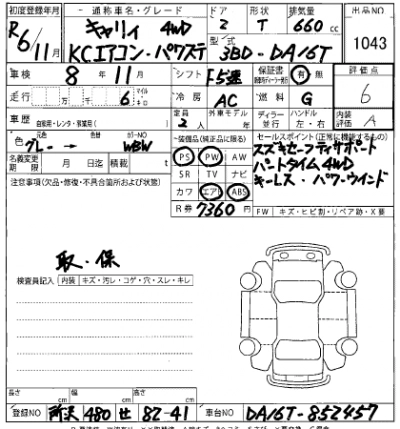 初度登録年月 通称車名・グレード ドア 形状 排気量 出品NO
R6/11月 キャリイ 4WD 2 T 660cc 1043
KCエアコン・パワステ 型式 3BD-DA16T
車検 8年11月 シフト F5速 保証書 有 無 評価点
走行 万 千 6 マイル キロ 冷房 AC 燃料 G 6
車歴 自家用・レンタ・営業用( ) 定員 2人 外車モデル ディーラー 左・右 ハンドル 内装評価 A
色 元色 グレー → カラーNO WBW 装備品(純正品に限る) セールスポイント(正常に機能するもの)
名義変更期限 月 日迄 積載 t PS PW AW スズキセーフティサポート
注意事項(欠品・修復・不具合箇所および状態) SR TV ナビ パートタイム4WD
カワ エアB ABS キーレス・パワーウインド
R券 7360円 FW キズ・ヒビ割・リペア跡・X要
取・保
検査員記入 内装 キズ・汚レ・コゲ・穴・スレ・キレ
長さ cm 幅 cm 高さ cm
登録NO 所沢 480 せ 82-41 車台NO DA16T-852457